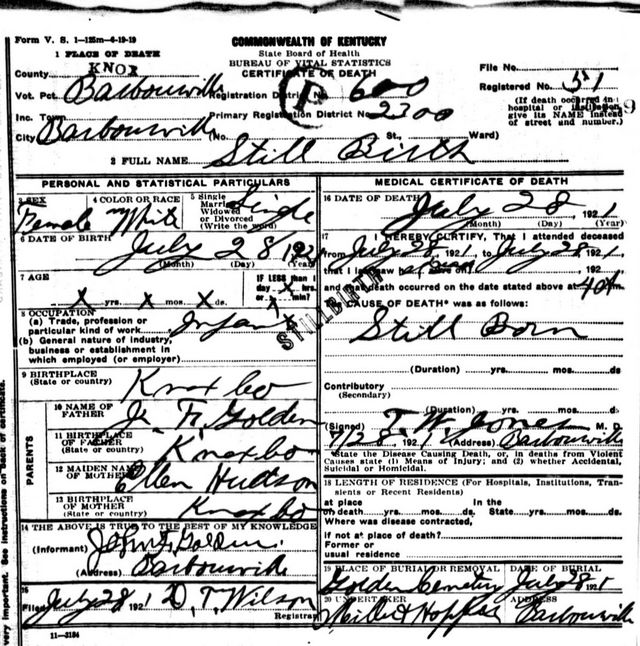 Form V. S. 1—125m—6-19-19
COMMONWEALTH OF KENTUCKY
State Board of Health
BUREAU OF VITAL STATISTICS
CERTIFICATE OF DEATH
1 PLACE OF DEATH
County KNOX
File No.
Registered No. 51
Vot. Pct. Barbourville Registration District No. 600
Inc. Town Primary Registration District No. 2300
(If death occurred in hospital or institution, give its NAME instead of street and number.)
City Barbourville No. St., Ward)
2 FULL NAME Still Birth
PERSONAL AND STATISTICAL PARTICULARS
3 SEX Female
4 COLOR OR RACE White
5 Single Married Widowed or Divorced (Write the word) Single
6 DATE OF BIRTH July 28 1921
(Month) (Day) (Year)
7 AGE
X yrs. X mos. X ds.
IF LESS than 1 day X hrs. or X min?
STILLBIRTH
8 OCCUPATION
(a) Trade, profession or particular kind of work Infant
(b) General nature of industry, business or establishment in which employed (or employer)
9 BIRTHPLACE
(State or country) Knox Co
PARENTS
10 NAME OF FATHER Golden
11 BIRTHPLACE OF FATHER
(State or country) Knox Co
12 MAIDEN NAME OF MOTHER Ellen Hudson
13 BIRTHPLACE OF MOTHER
(State or country) Knox Co
14 THE ABOVE IS TRUE TO THE BEST OF MY KNOWLEDGE
(Informant) Golden
(Address) Barbourville
15
Filed July 28 1921 D. T. Wilson
Registrar
11—3184
MEDICAL CERTIFICATE OF DEATH
16 DATE OF DEATH July 28, 1921
(Month) (Day) (Year)
17 I HEREBY CERTIFY, That I attended deceased
from July 28, 1921, to July 28, 1921
that I last saw h on 192
and that death occurred on the date stated above at m.
CAUSE OF DEATH* was as follows:
Still Born
(Duration) yrs. mos. ds
Contributory
(Secondary)
(Duration) yrs. mos. ds
(Signed) T. W. Jones M. D.
7/28, 1921 (Address) Barbourville
*State the Disease Causing Death, or, in deaths from Violent Causes state (1) Means of Injury; and (2) whether Accidental, Suicidal or Homicidal.
18 LENGTH OF RESIDENCE (For Hospitals, Institutions, Transients or Recent Residents)
at place In the
on death yrs. mos. ds. State yrs. mos. ds
Where was disease contracted,
If not at place of death?
Former or
usual residence
19 PLACE OF BURIAL OR REMOVAL DATE OF BURIAL
Golden Cemetery July 28 1
20 UNDERTAKER ADDRESS
Barbourville
very important. See instructions on back of certificate.